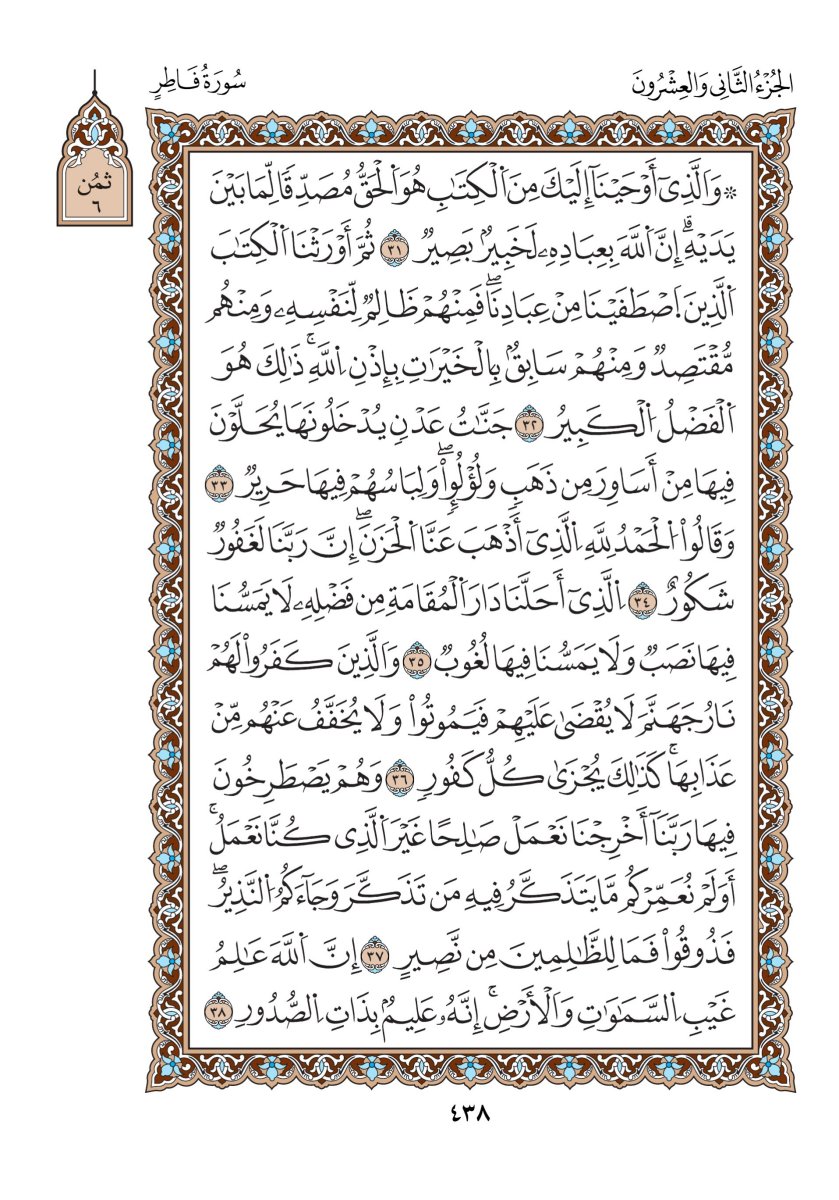 الجُزْءُ الثَّانِي وَالعِشْرُونَ
سُورَةُ فَاطِرٍ
ثمُن
٦
۞ وَالَّذِىٓ أَوْحَيْنَآ إِلَيْكَ مِنَ اَلْكِتَٰبِ هُوَ اَلْحَقُّ مُصَدِّقًا لِّمَا بَيْنَ
يَدَيْهِۗ إِنَّ اَللَّهَ بِعِبَادِهِۦ لَخَبِيرٌۢ بَصِيرٌ ٣١ ثُمَّ أَوْرَثْنَا اَلْكِتَٰبَ
اَلَّذِينَ اَصْطَفَيْنَا مِنْ عِبَادِنَاۖ فَمِنْهُمْ ظَالِمٌ لِّنَفْسِهِۦ وَمِنْهُم
مُّقْتَصِدٌ وَمِنْهُمْ سَابِقٌۢ بِالْخَيْرَٰتِ بِإِذْنِ اِللَّهِۚ ذَٰلِكَ هُوَ
اَلْفَضْلُ اُلْكَبِيرُ ٣٢ جَنَّٰتُ عَدْنٍ يُدْخَلُونَهَا يُحَلَّوْنَ
فِيهَا مِنْ أَسَاوِرَ مِن ذَهَبٍ وَلُؤْلُؤٍاۖ وَلِبَاسُهُمْ فِيهَا حَرِيرٌ ٣٣
وَقَالُواْ اُلْحَمْدُ لِلَّهِ اِلَّذِىٓ أَذْهَبَ عَنَّا اَلْحَزَنَۖ إِنَّ رَبَّنَا لَغَفُورٌ
شَكُورٌ ٣٤ اِلَّذِىٓ أَحَلَّنَا دَارَ اَلْمُقَامَةِ مِن فَضْلِهِۦ لَا يَمَسُّنَا
فِيهَا نَصَبٌ وَلَا يَمَسُّنَا فِيهَا لُغُوبٌ ٣٥ وَالَّذِينَ كَفَرُواْ لَهُمْ
نَارُ جَهَنَّمَ لَا يُقْضَىٰ عَلَيْهِمْ فَيَمُوتُواْ وَلَا يُخَفَّفُ عَنْهُم مِّنْ
عَذَابِهَاۚ كَذَٰلِكَ يُجْزَىٰ كُلُّ كَفُورٍ ٣٦ وَهُمْ يَصْطَرِخُونَ
فِيهَا رَبَّنَآ أَخْرِجْنَا نَعْمَلْ صَٰلِحًا غَيْرَ اَلَّذِى كُنَّا نَعْمَلُۚ
أَوَلَمْ نُعَمِّرْكُم مَّا يَتَذَكَّرُ فِيهِ مَن تَذَكَّرَ وَجَآءَكُمُ اُلنَّذِيرُۖ
فَذُوقُواْ فَمَا لِلظَّٰلِمِينَ مِن نَّصِيرٍ ٣٧ إِنَّ اَللَّهَ عَٰلِمُ
غَيْبِ اِلسَّمَٰوَٰتِ وَالْأَرْضِۚ إِنَّهُۥ عَلِيمٌۢ بِذَاتِ اِلصُّدُورِ ٣٨
٤٣٨